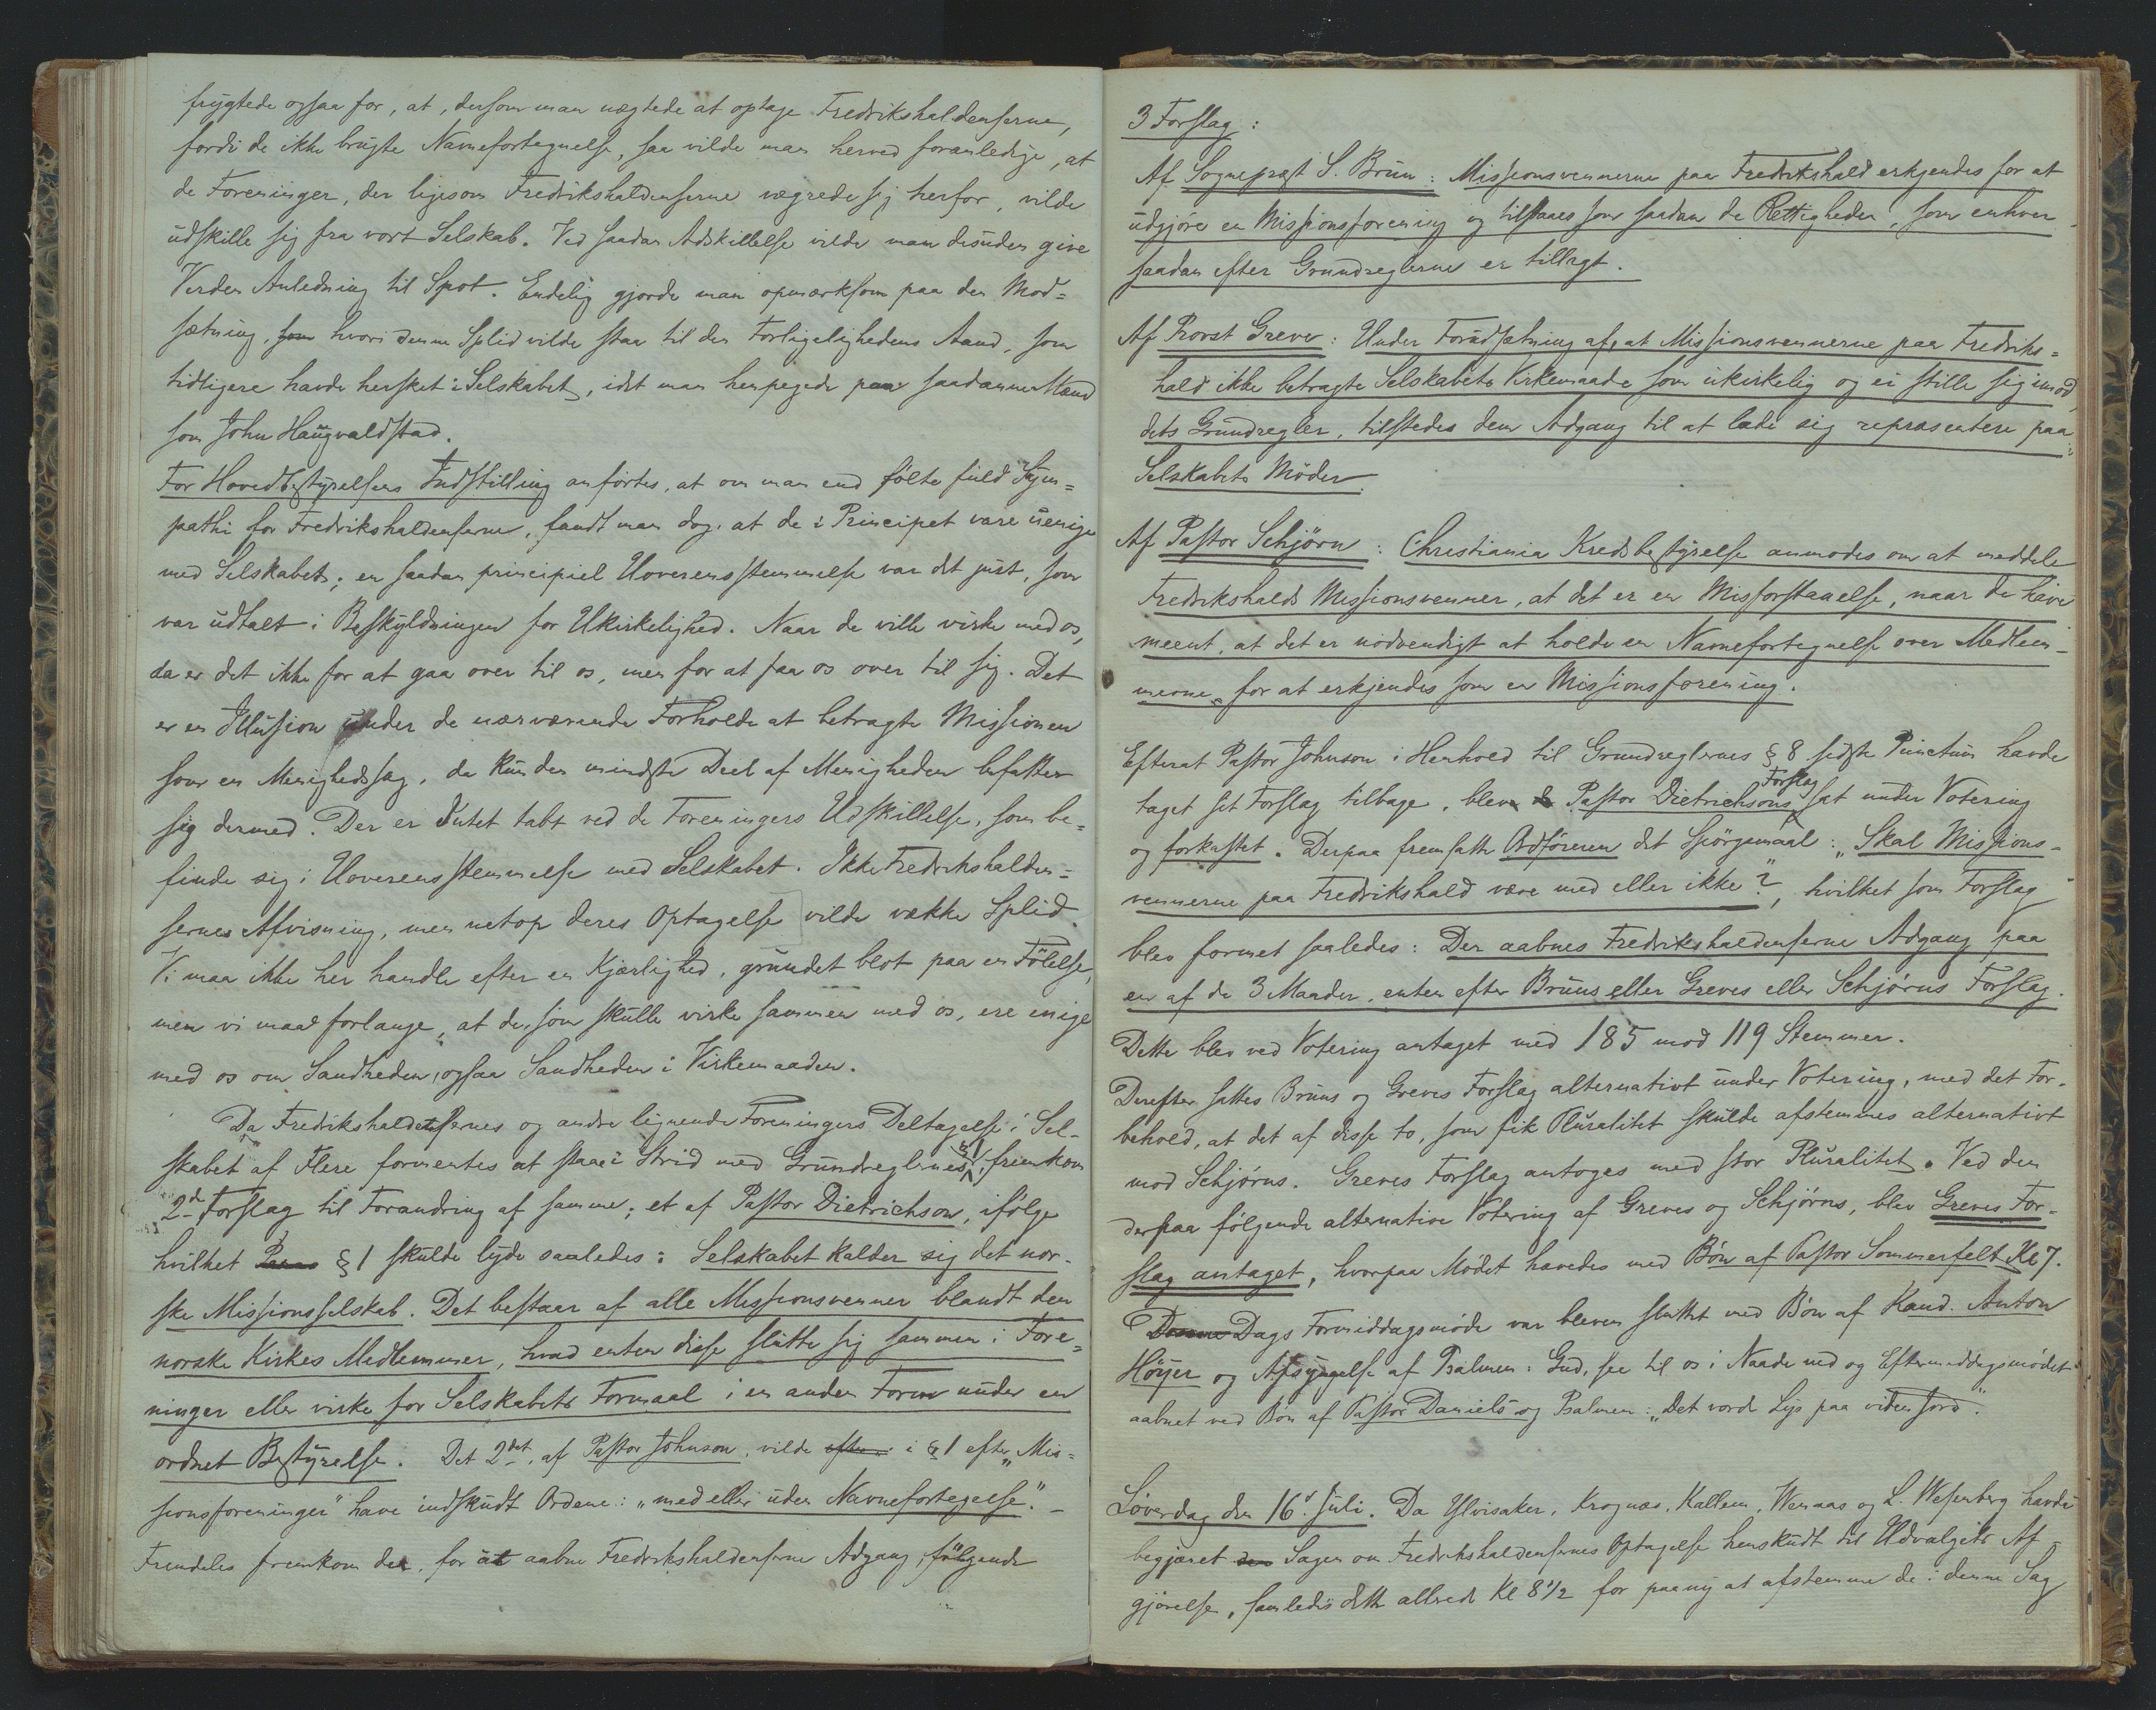 frygtede ogsaa for, at, dersom man nægtede at optage Fredrikshaldenserne,
fordi de ikke brugte Navnefortegnelse, saa vilde man herved foranledige, at
de Foreninger, der ligesom Fredrikshaldenserne vægrede sig herfor, vilde
udskille sig fra vort Selskab. Ved saadan Adskillelse vilde man desuden give
Verden Anledning til Spot. Endelig gjorde man opmærksom paa den Mod=
sætning, som hvori denne Splid vilde staa til den Forligelighedens Aand, som
tidligere havde hersket i Selskabet, idet man henpegede paa saadanne Mænd
som John Haugvaldstad.
For Hovedbestyrelsens Indstilling anførtes, at om man end følte fuld Sym=
pathi for Fredrikshaldenserne, fandt man dog, at de i Principet vare uenige
med Selskabet; en saadan principiel Uoverensstemmelse var det just, som
var udtalt i Beskyldningen for Ukirkelighed. Naar de ville virke med os,
da er det ikke for at gaa over til os, men for at faa os over til sig. Det
er en Illusion under de nærværende Forholde at betragte Missionen
som en Menighedssag, da kun den mindste Deel af Menigheden befatter
sig dermed. Der er Intet tabt ved de Foreningers Udskillelse, som be=
finde sig i Uoverensstemmelse med Selskabet. Ikke Fredrikshalden=
sernes Afvisning, men netop deres Optagelse vilde vække Splid.
Vi maa ikke her handle efter en Kjærlighed, grundet blot paa en Følelse,
men vi maa forlange, at de, som skulle virke sammen med os, ere enige
med os om Sandheden, ogsaa Sandheden i Virkemaaden.
Da Fredrikshaldensernes og andre lignende Foreningers Deltagelse i Sel-
skabet af Flere formentes at staae i Strid med Grundreglernes § 1, fremkom
2de Forslag til Forandring af samme; et af Pastor Dietrichson, ifølge
hvilket § 1 skulde lyde saaledes: Selskabet kalder sig det nor-
ske Missionsselskab. Det bestaar af alle Missionsvenner blandt den
norske Kirkes Medlemmer, hvad enten disse slutte sig sammen i Fore=
ninger eller virke for Selskabets Formaal i en anden Form under en
ordnet Bestyrelse. Det 2det, af Pastor Johnson, vilde efter i § 1 efter „Mis=
sionsforeninger" have indskudt Ordene: „med eller uden Navnefortegelse". -
Fremdeles fremkom der, for at aabne Fredrikshaldenserne Adgang, følgende
3 Forslag:
Af Sognepræst S. Brun: Missionsvennerne paa Fredrikshald erkjendes for at
udgjøre en Missionsforening og tilstaaes som saadan de Rettigheder, som enhver
saadan efter Grundreglerne er tillagt.
Af Provst Greve: Under Forudsætning af, at Missionsvennerne paa Fredriks=
hald ikke betragte Selskabets Virkemaade som ukirkelig og ei stille sig imod
dets Grundregler, tilstedes dem Adgang til at lade sig repræsentere paa
Selskabets Møder.
Af Pastor Schjørn: Christiania Kredsbestyrelse anmodes om at meddele
Fredrikshalds Missionsvenner, at det er en Misforstaaelse, naar de have
meent, at det er nødvendigt at holde en Navnefortegnelse over Medlem-
merne, for at erkjendes som en Missionsforening.
Efterat Pastor Johnson i Henhold til Grundreglernes § 8 sidste Punctum havde
taget sit Forslag tilbage, blev Pastor Dietrichsons Forslag sat under Votering
og forkastet. Derpaa fremsatte Ordføreren det Spørgsmaal: „Skal Missions-
vennerne paa Fredrikshald være med eller ikke?", hvilket som Forslag
blev formet saaledes: Der aabnes Fredrikshaldenserne Adgang paa
en af de 3 Maader, enten efter Bruns eller Greves eller Schjørns Forslag.
Dette blev ved Votering antaget med 185 mod 119 Stemmer.
Derefter sattes Bruns og Greves Forslag alternativt under Votering, med det For-
behold, at det af disse to, som fik Pluralitet skulde afstemmes alternativt
mod Schjørns. Greves Forslag antoges med stor Pluralitet. Ved den
derpaa følgende alternative Votering af Greves og Schjørns, blev Greves For-
slag antaget, hvorpaa Mødet hævedes med Bøn af Pastor Sommerfelt Kl 7.
Denne Dags Formiddagsmøde var bleven sluttet med Bøn af Kand. Anton
Høyer og Afsyngelse af Psalmen: Gud, see til os i Naade ned og Eftermiddagsmødet
aabnet ved Bøn af Pastor Daniels og Psalmen: „Det vorde Lys paa viden Jord".
Løverdag den 16d Juli. Da Ylvisaker, Krognæs, Kallem, Wemaas og L. Wesenberg havde
begjæret den Sagen om Fredrikshaldensernes Optagelse henskudt til Udvalgets Af-
gjørelse, samledes dette allerede Kl 8 1/2 for paany at afstemme de i denne Sag